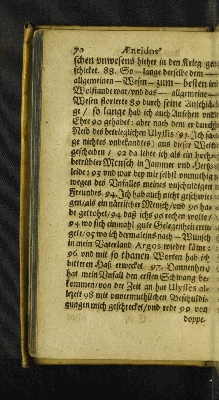 70 Æneidos
schen unwesens hieher in den Krieg ge-
schicket. 88. So — lange derselbe dem —
allgemeinen — Wesen — zum — besten im
Wolstande war/ und das — allgemeine —
Wesen florierte 89 durch seine
ge/ so lange hab ich auch Ansehen und
Ehre 90 gehabet: aber nach dem er durch
Neid des betrieglichen Ulyssis/ 91. Ich sa-
ge nichtes unbekandtes/ aus dieser Welt
gescheiden / 92 da lebte ich als ein hoch-
betrübter Mensch in Jammer und Hertz-
leide: 93 und war bey mir selbst unmuthig
wegen des Unfalles meines unschuldigen
Freundes. 94. Ich hab auch nicht geschwie-
gen/ als ein närrischer Mensch/ und 96 ha-
be getrohet/ 94 daß ichs 96 rechen wolte/
94 wo sich einmahl gute Gelegenheit ereu-
gete/ 95 wo ich dermaleins nach — Wunsch
in mein Vaterland Argos wieder käme:
96 und mit so thanen Worten hab ich
bitteren Haß erwecket. 97. Dannenhero
hat mein Unfall den ersten Schwang be-
kommen/ von der Zeit an hat Ulysses al-
lezeit 98 mit unvermuthlichen Beschuldi-
gungen mich geschrecket/ und redt 99 von
doppe-